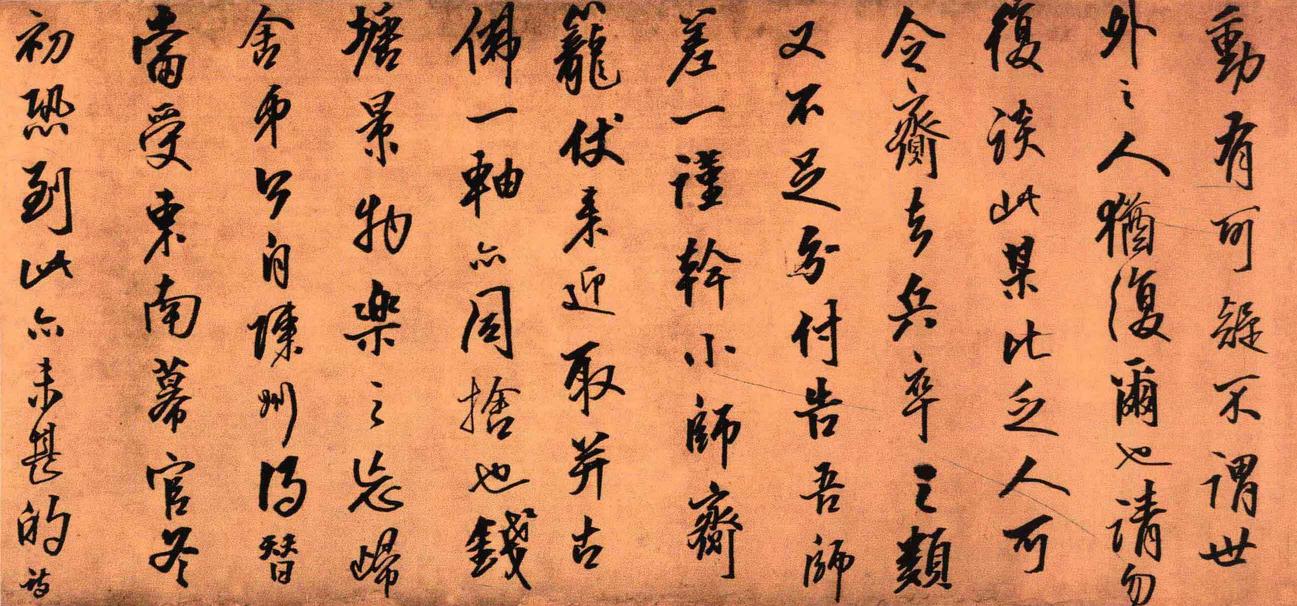 動有可疑不謂世
外之人猶復爾也請勿
復談此某比乏人可
令齎去兵卒之類
又不足分付告吾師
差一謹幹小師齎
籠仗来迎取并古
佛一軸亦同捨也錢
塘景物樂之忘歸
舍弟今自陳州得替
當受東南幕官冬
初恐到此亦未甚的詩